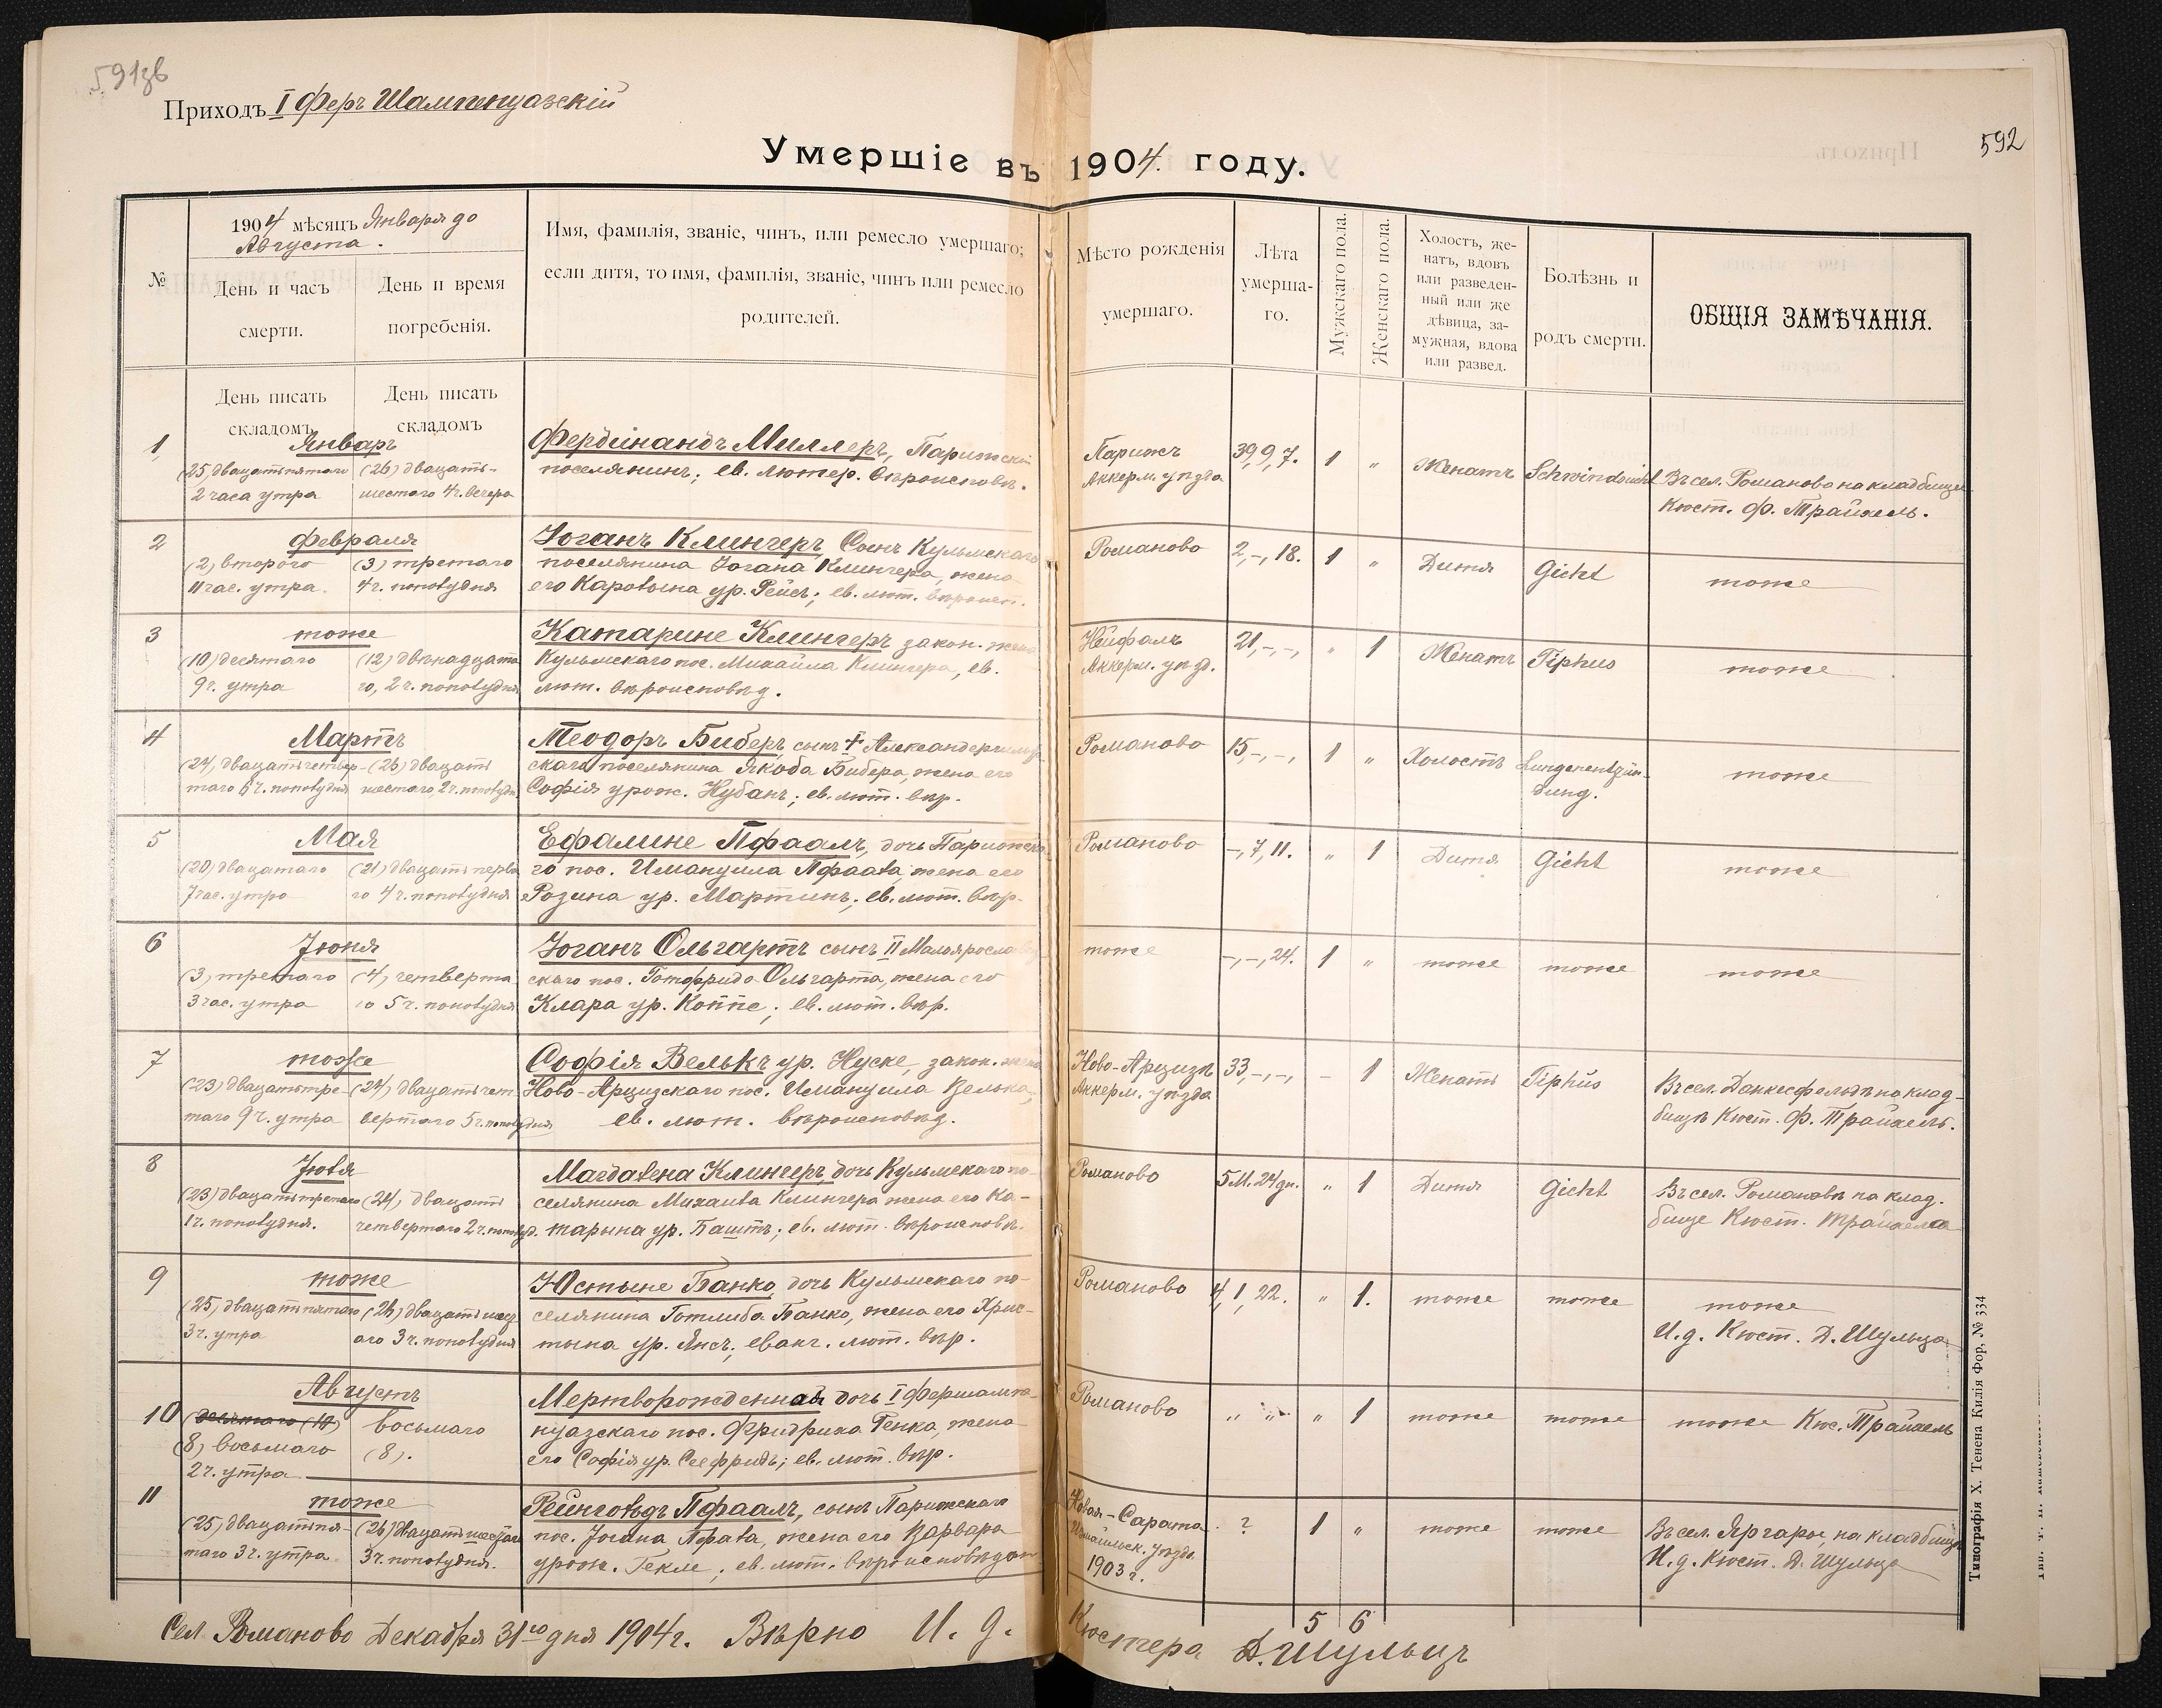 591зв
592
Приходъ I Фере Шампенуазскій
Умершіе въ 1904. году.
№
1904 мѣсяцъ Января до
Августа.
День и часъ
смерти.
День и время
погребенія.
Имя, фамилія, званіе, чинъ, или ремесло умершаго;
если дитя, то имя, фамилія, званіе, чинъ или ремесло
родителей.
Мѣсто рожденія
умершаго.
Лѣта
умерша-
го.
Мужскаго пола.
Женскаго пола.
Холостъ, же-
натъ, вдовъ
или разведен-
ный или же
дѣвица, за-
мужная, вдова
или развед.
Болѣзнь и
родъ смерти.
ОБЩІЯ ЗАМѢЧАНІЯ.
День писать
складомъ
День писать
складомъ
1
Январь
(25) двацатьпятаго
2 часа утра
(26) двацать-
шестаго 4 ч. вечера
Фердинандъ Миллеръ, Парижскій
поселянинъ; ев. лютер. вѣроисповѣ.
Парижъ
Аккерм. уѣзда
39, 9, 7.
1
"
Женатъ
Schwindsucht
Въ сел. Романово на кладбищѣ
Кюст. Ф. Трайхель.
2
Февраля
(2) второго
11 час. утра.
(3) третаго
4 ч. пополудня
Іоганъ Клингеръ, Сынъ Кульмскаго
поселянина Іогана Клингера, жена
его Каролына ур. Рейсъ; ев. лют. вѣроисп.
Романово
2, –, 18.
1
"
Дитя
Gicht
тоже
3
тоже
(10) десятаго
9 ч. утра
(12) двѣнадцата
го, 2 ч. пополудня
Катарине Клингеръ закон. жена
Кульмскаго пос. Михаила Клингера, ев.
лют. вѣроисповѣд.
Нейфалъ
Аккерм. уѣзд.
21, –, –,
"
1
Женатъ
Tiphus
тоже
4
Мартъ
(24) двацатьчетвер-
таго 6 ч. пополудня
(26) двацать
шестаго, 2 ч. пополудн.
Теодоръ Биберъ, сынъ † Александерфельд
скаго поселянина Якоба Бибера, жена его
Софія урож. Нубанъ; ев. лют. вѣр.
Романово
15, –, –,
1
"
Холостъ
Lungenentzün-
dung.
тоже
5
Мая
(20) двацатаго
7 час. утра
(21) двацать перва
го 4 ч. пополудня
Ефалине Пфаалъ, дочь Парижска
го пос. Имануила Пфаала, жена его
Розина ур. Мартинъ; ев. лют. вѣр.
Романово
–, 7, 11.
"
1
Дитя
Gicht
тоже
6
Іюня
(3) третаго
3 час. утра
(4) четверта
го 5 ч. пополудня
Іоганъ Ольгартъ сынъ II Малоярослав
скаго пос. Готфрида Ольгарта, жена его
Клара ур. Коппе; ев. лют. вѣр.
тоже
–, –, 24.
1
"
тоже
тоже
тоже
7
тоже
(23) двацатьтре-
таго 9 ч. утра
(24) двацать чет
вертаго 5 ч. пополудня
Софія Велькъ ур. Нуске, закон. жена
Ново-Арцизскаго пос. Имануила Велька,
ев. лют. вѣроисповѣд.
Ново-Арцизъ
Аккерм. уѣзда
33, –, –,
–
1
Женатъ
Tiphus
Въ сел. Данкесфельдѣ на клад-
бищѣ Кюст. Ф. Трайхель.
8
Іюля
(23) двацатьтретаго
1 ч. пополудня.
(24) двацать
четвертаго 2 ч. пополуд.
Магдалена Клингеръ дочь Кульмскаго по-
селянина Михаила Клингера жена его Ка-
тарына ур. Баштъ; ев. лют. вѣроисповѣ.
Романово
5 М. 24 дн.
"
1
Дитя
Gicht
Въ сел. Романовѣ на клад.
бище Кюст. Трайхель
9
тоже
(25) двацатьпятаго
3 ч. утра
(26) двацать шест
аго 3 ч. пополудня
Юстыне Банко, дочь Кульмскаго по-
селянина Готлиба Банко, жена его Хрис-
тына ур. Янсъ; еванг. лют. вѣр.
Романово
4, 1, 22.
"
1.
тоже
тоже
тоже
И. д. Кюст. Д. Шульца
10
Августъ
десятаго (10)
(8) восьмаго
2 ч. утра
восьмаго
(8).
Мертворожденная дочь I Фершампе-
нуазскаго пос. Фридриха Генка, жена
его Софія ур. Сеефридъ; ев. лют. вѣр.
Романово
" "
"
1
тоже
тоже
тоже Кюс. Трайхель
11
тоже
(25) двацатьпя-
таго 3 ч. утра
(26) двацатьшестаго
3 ч. пополудня.
Рейнгольдъ Пфаалъ, сынъ Парижскаго
пос. Іогана Пфала, жена его Варвара
урож. Гекле; ев. лют. вѣроисповѣдан
Новая-Сарата
Измаильск. уѣзда
1903 г.
?
1
"
тоже
тоже
Въ сел. Яргары, на кладбищѣ
И. д. Кюст. Д. Шульца
5 6
Сел Романово Декабря 31го дня 1904 г. Вѣрно И. д. Кюстера Д. Шульцъ
Типографія Х. Тенена Килія Фор, № 334